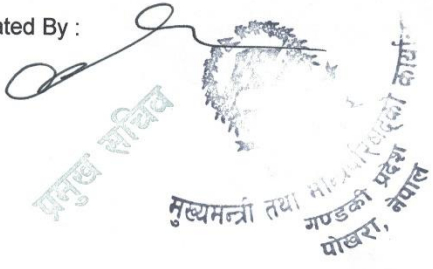 ated By :
प्रमुख सचिव
मुख्यमन्त्री तथा मन्त्रिपरिषद्को कार्या
गण्डकी प्रदेश
पोखरा, नेपाल